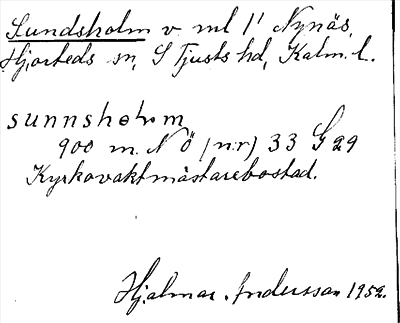 Sundsholm v. ml 1' Nynäs,
Hjorteds sn, S Tjusts hd, Kalm. l.
sunnshorm
900 m. N Ö (nr) 33 G 29
Kyrkovaktmästarebostad.
Hjalmar Andersson 1952.